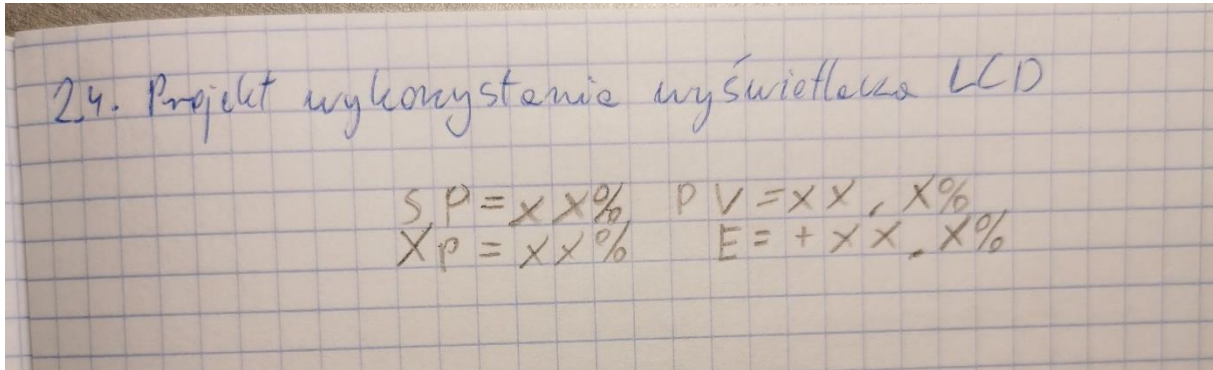 2.4. Projekt wykorzystania wyświetlacza LCD
SP=XX% PV=XX,X%
Xp=XX% E=+XX.X%